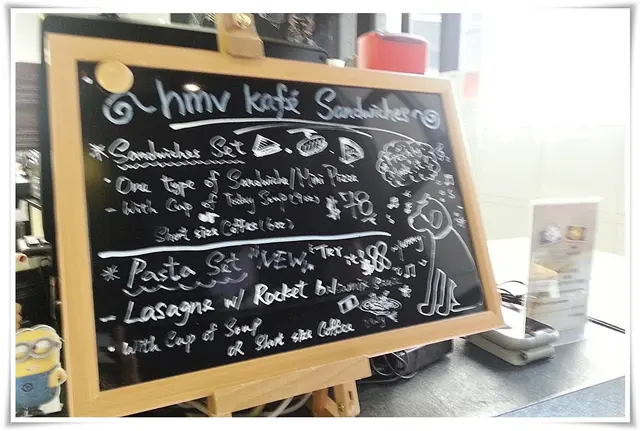 hmv kafé Sandwiches
* Sandwiches Set
· One type of Sandwichs/Mini Pizza
- With Cup of Today Soup (9oz) $78
or
Short size Coffee (8oz)
* Pasta Set "NEW" "Try it $88
- Lasagne w/ Rocket balsamic yummy
- With Cup of Soup
or Short size Coffee